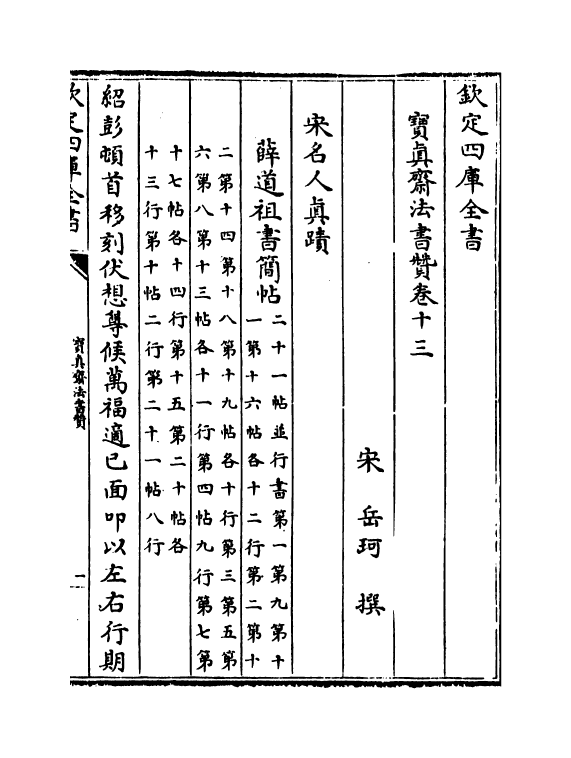 欽定四庫全書
寶眞齋法書贊卷十三
宋 岳珂 撰
宋名人眞蹟
薛道祖書簡帖
二十一帖並行書第一第九第十
一第十六帖各十二行第二第十
二第十四第十八第十九帖各十行第三第五第
六第八第十三帖各十一行第四帖九行第七第
十七帖各十四行第十五第二十帖各
十三行第十帖二行第二十一帖八行
紹彭頓首移刻伏想尊候萬福適已面叩以左右行期
欽定四庫全書
寶眞齋法書贊
一